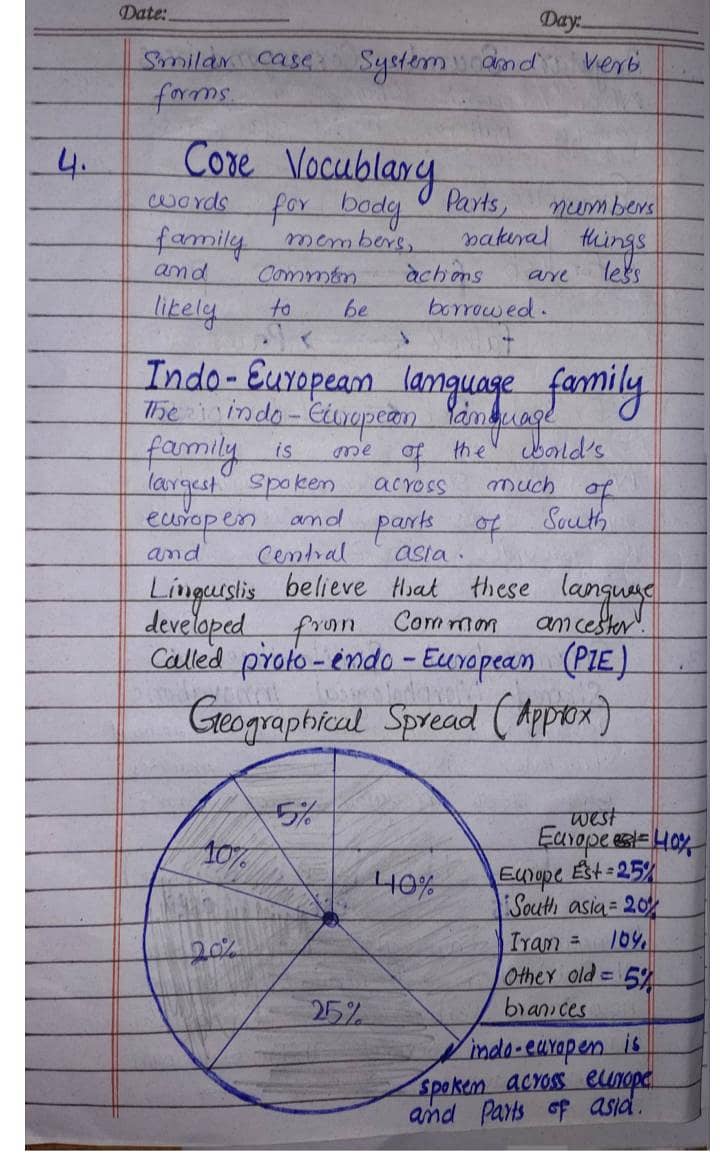 Date: Day:
Smilar case System and verb
forms.
4. Core Vocublary
words for body Parts, numbers
family members, natural things
and Common actions are less
likely to be borrowed.
Indo-European language family
The indo-European language
family is one of the world's
largest spoken across much of
europen and parts of South
and Central asia.
Linguistis believe that these language
developed from Common ancestor.
Called proto-indo-European (PIE)
Geographical Spread (Approx)
5%
10%
40%
20%
25%
west
Europe = 40%
Europe Est = 25%
South asia = 20%
Iran = 10%
Other old = 5%
branices
indo-europen is
spoken across europe
and Parts of asia.